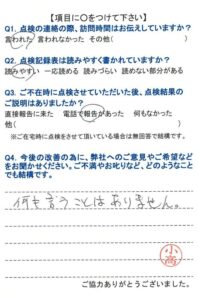 【項目に○をつけて下さい】
Q1. 点検の連絡の際、訪問時間はお伝えしていますか?
言われた 言われなかった その他(
Q2. 点検記録表は読みやすく書かれていますか?
読みやすい 一応読める 読みづらい 読めない部分がある
Q3. ご不在時に点検させていただいた後、点検結果の
ご説明はありましたか?
直接報告に来た 電話で報告があった 何もなかった
他(
※ご在宅時に点検をさせて頂いている場合は無回答で結構です。
Q4. 今後の改善の為に、弊社へのご意見やご希望など
をお聞かせください。ご不満やお叱りなど、どのようなこと
でも結構です。
何も言うことはありません。
小高
ご協力ありがとうございました。